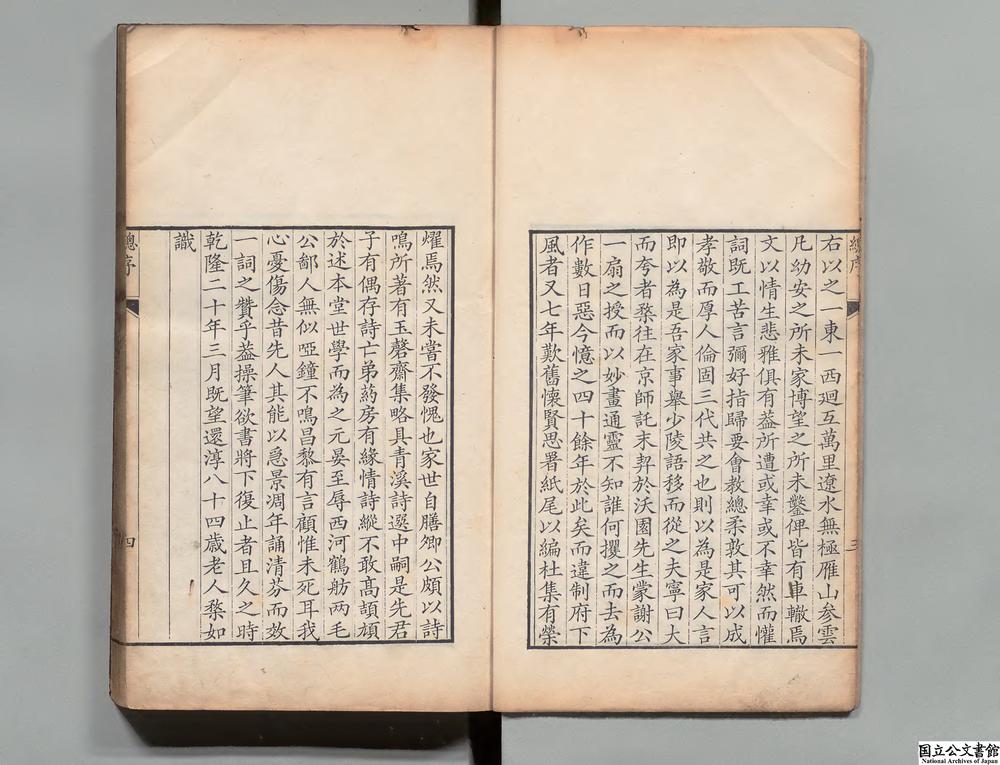 總序
三
右以之一東一西廻互萬里遼水無極雁山參雲
凡幼安之所未家博望之所未鑿俾皆有車轍焉
文以情生悲雅俱有葢所遭或幸或不幸然而懽
詞既工苦言彌好指歸要會教總柔敦其可以成
孝敬而厚人倫固三代共之也則以為是家人言
即以為是吾家事舉少陵語移而從之夫寧曰大
而夸者棻往在京師託末契於沃園先生蒙謝公
一扇之授而以妙畫通靈不知誰何攫之而去為
作數日惡今憶之四十餘年於此矣而違制府下
風者又七年歎舊懷賢思署紙尾以編杜集有榮
燿焉然又未嘗不發愧也家世自膳卿公頗以詩
鳴所著有玉磬齋集略具青溪詩選中嗣是先君
子有偶存詩亡弟葯房有緣情詩縱不敢高頡頏
於述本堂世學而為之元晏至辱西河鶴舫两毛
公鄙人無似啞鐘不鳴昌黎有言顧惟未死耳我
心憂傷念昔先人其能以急景凋年誦清芬而效
一詞之贊乎葢操筆欲書將下復止者且久之時
乾隆二十年三月既望還淳八十四歲老人棻如
識
總序
四
国立公文書館
National Archives of Japan